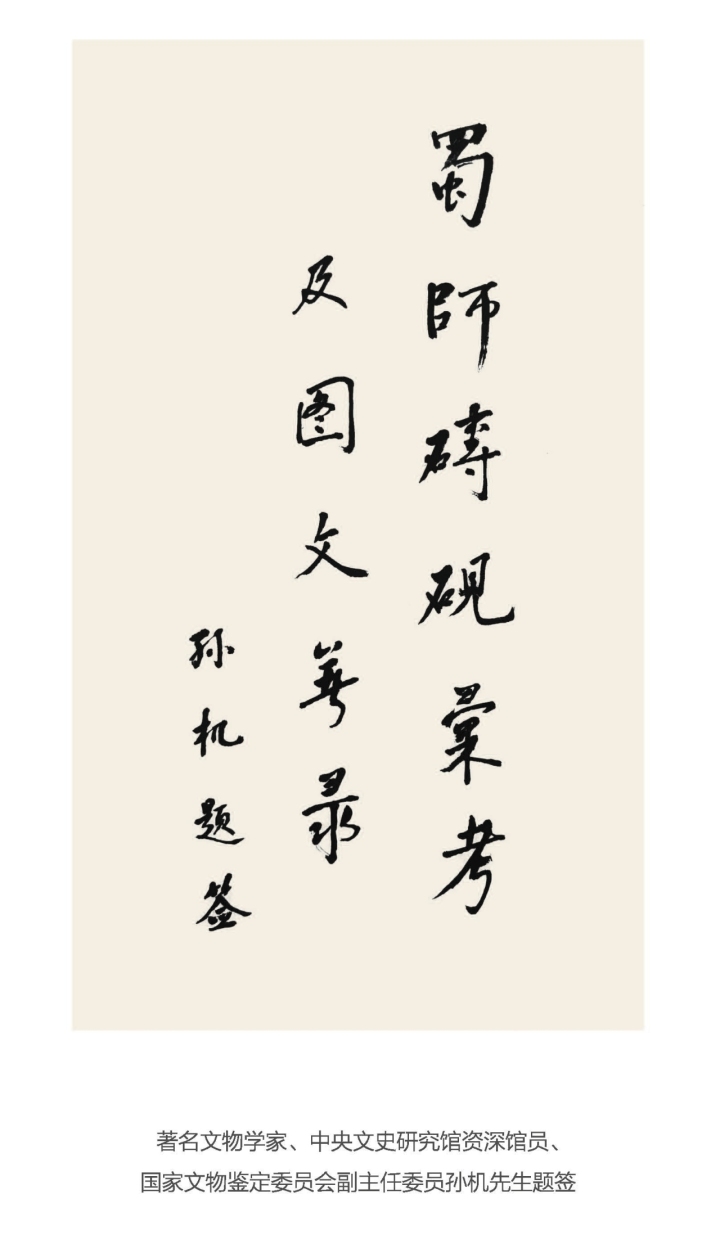 蜀師磚硯彙考
及图文录
孙机题签
著名文物学家、中央文史研究馆资深馆员、
国家文物鉴定委员会副主任委员孙机先生题签